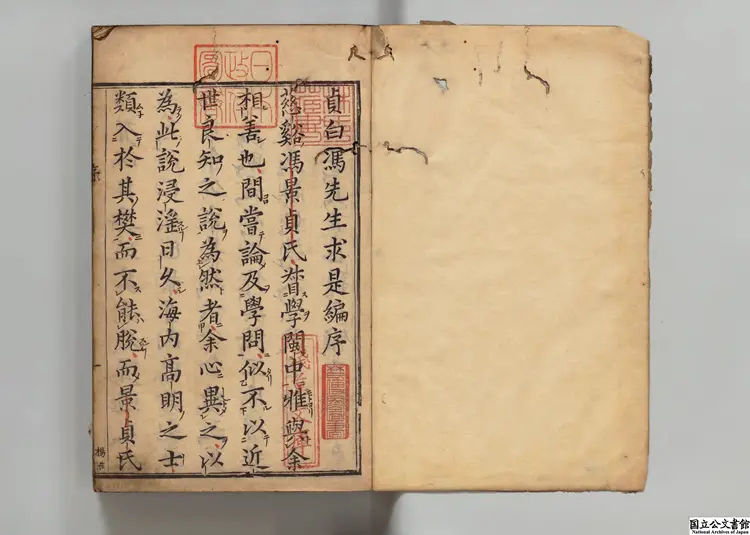 貞白馮先生求是編序
慈谿馮景貞氏督學閩中雅與余
相善也間嘗論及學問似不以近
世良知之說為然者余心異之以
為此說浸淫日久海內高明之士
類入於其樊而不能脫而景貞氏
国立公文書館
National Archives of Japan